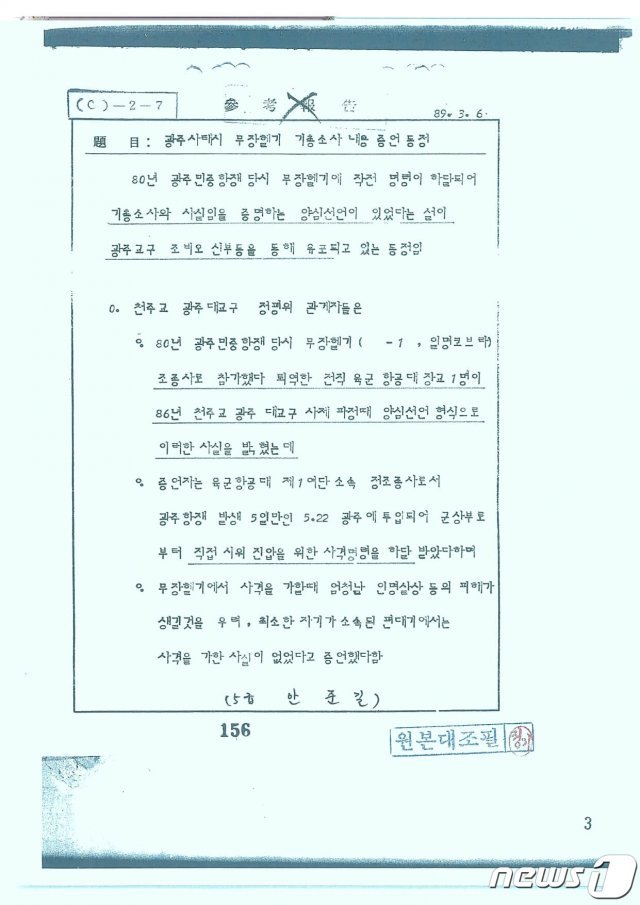 (C)-2-7
參 考 報 告
89. 3. 6.
題 目: 광주사태시 무장헬기 기총소사 내용 증언 동정
80년 광주민중항쟁 당시 무장헬기에 작전 명령이 하달되어
기총소사와 사실임을 증명하는 양심선언이 있었다는 설이
광주교구 조비오 신부등을 통해 유포되고 있는 동정임
0. 천주교 광주 대교구 정평위 관계자들은
° 80년 광주민중항쟁 당시 무장헬기( -1 , 일명코브라)
조종사로 참가했다 퇴역한 전직 육군 항공대 장교 1명이
86년 천주교 광주 대교구 사제 피정때 양심선언 형식으로
이러한 사실을 밝혔는데
° 증언자는 육군항공대 제1여단 소속 정조종사로서
광주항쟁 발생 5일만인 5.22 광주에 투입되어 군상부로
부터 직접 시위 진압을 위한 사격명령을 하달 받았다하며
° 무장헬기에서 사격을 가할때 엄청난 인명살상 등의 피해가
생길것을 우려, 최소한 자기가 소속된 편대기에서는
사격을 가한 사실이 없었다고 증언했다함
(5급 안 준 길)
156
원본대조필
3
news1